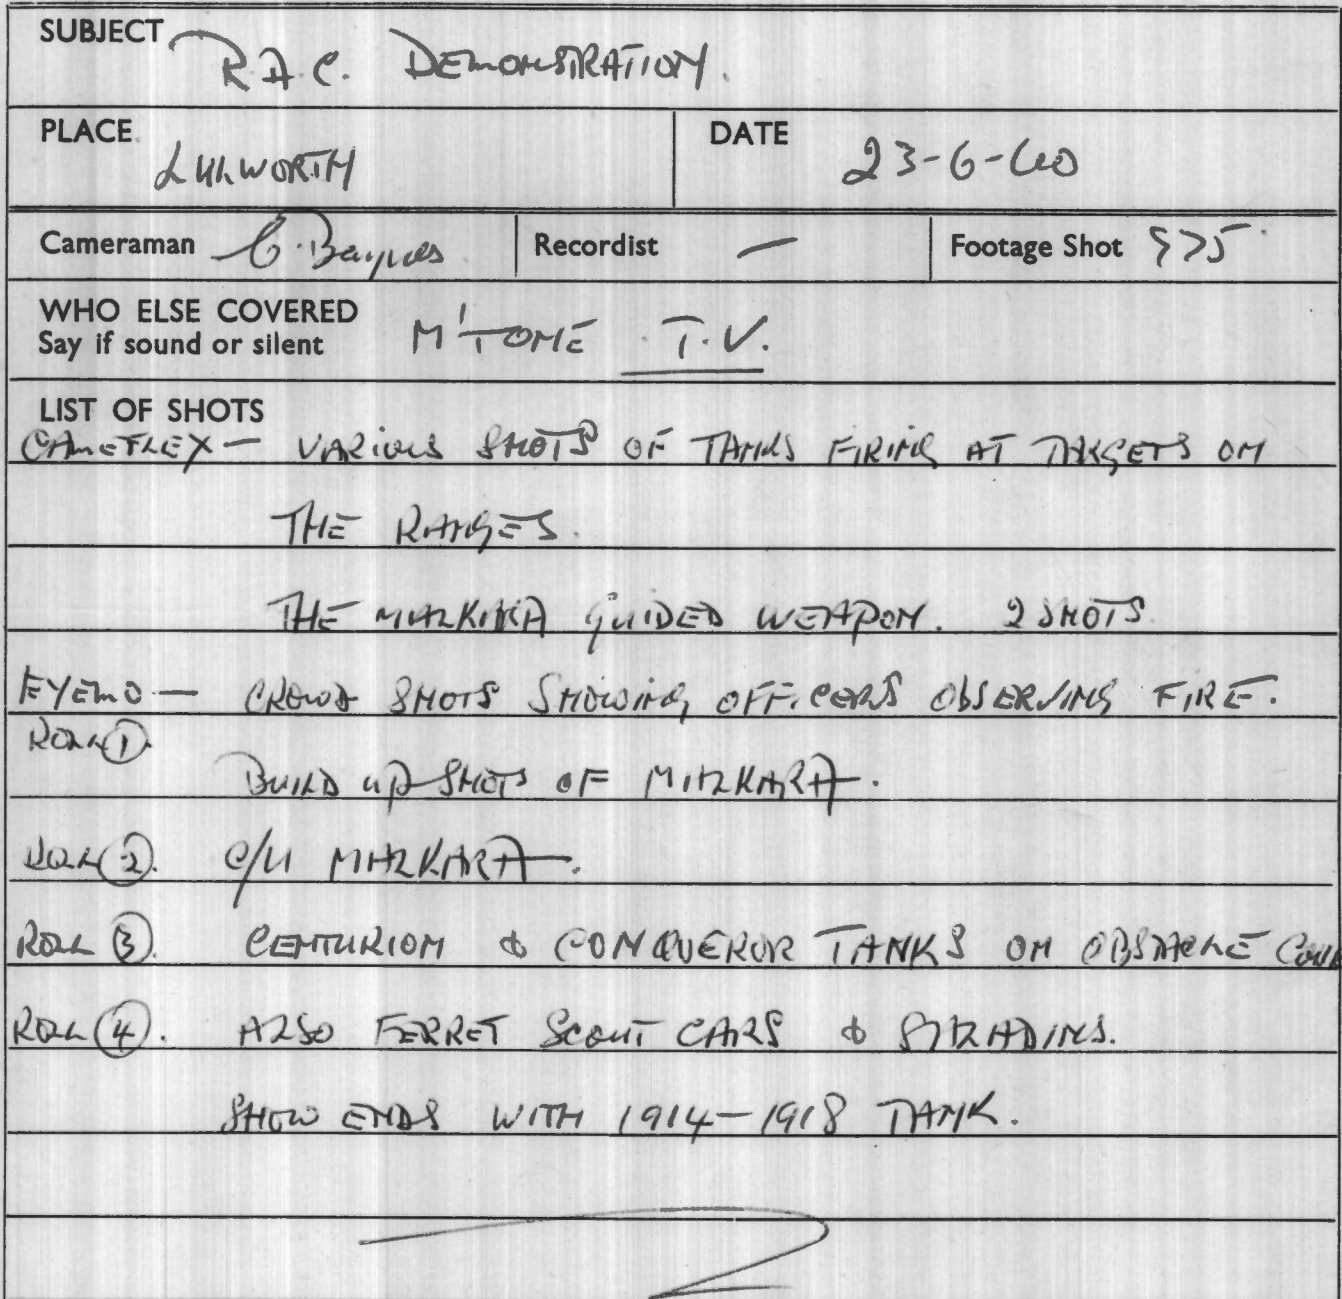 SUBJECT R.A.C. DEMONSTRATION.
PLACE. LULWORTH DATE 23-6-60
Cameraman C. Baynes Recordist — Footage Shot 975.
WHO ELSE COVERED
Say if sound or silent M'TONE T.V.
LIST OF SHOTS
CAMEFLEX — VARIOUS SHOTS OF TANKS FIRING AT TARGETS ON
THE RANGES.
THE MALKARA GUIDED WEAPON. 2 SHOTS.
EYEMO — CROWD SHOTS SHOWING OFFICERS OBSERVING FIRE.
ROLL 1.
BUILD UP SHOTS OF MALKARA.
ROLL 2. C/U MALKARA.
ROLL 3. CENTURION & CONQUEROR TANKS ON OBSTACLE
ROLL 4. ALSO FERRET SCOUT CARS & SALADINS.
SHOW ENDS WITH 1914-1918 TANK.